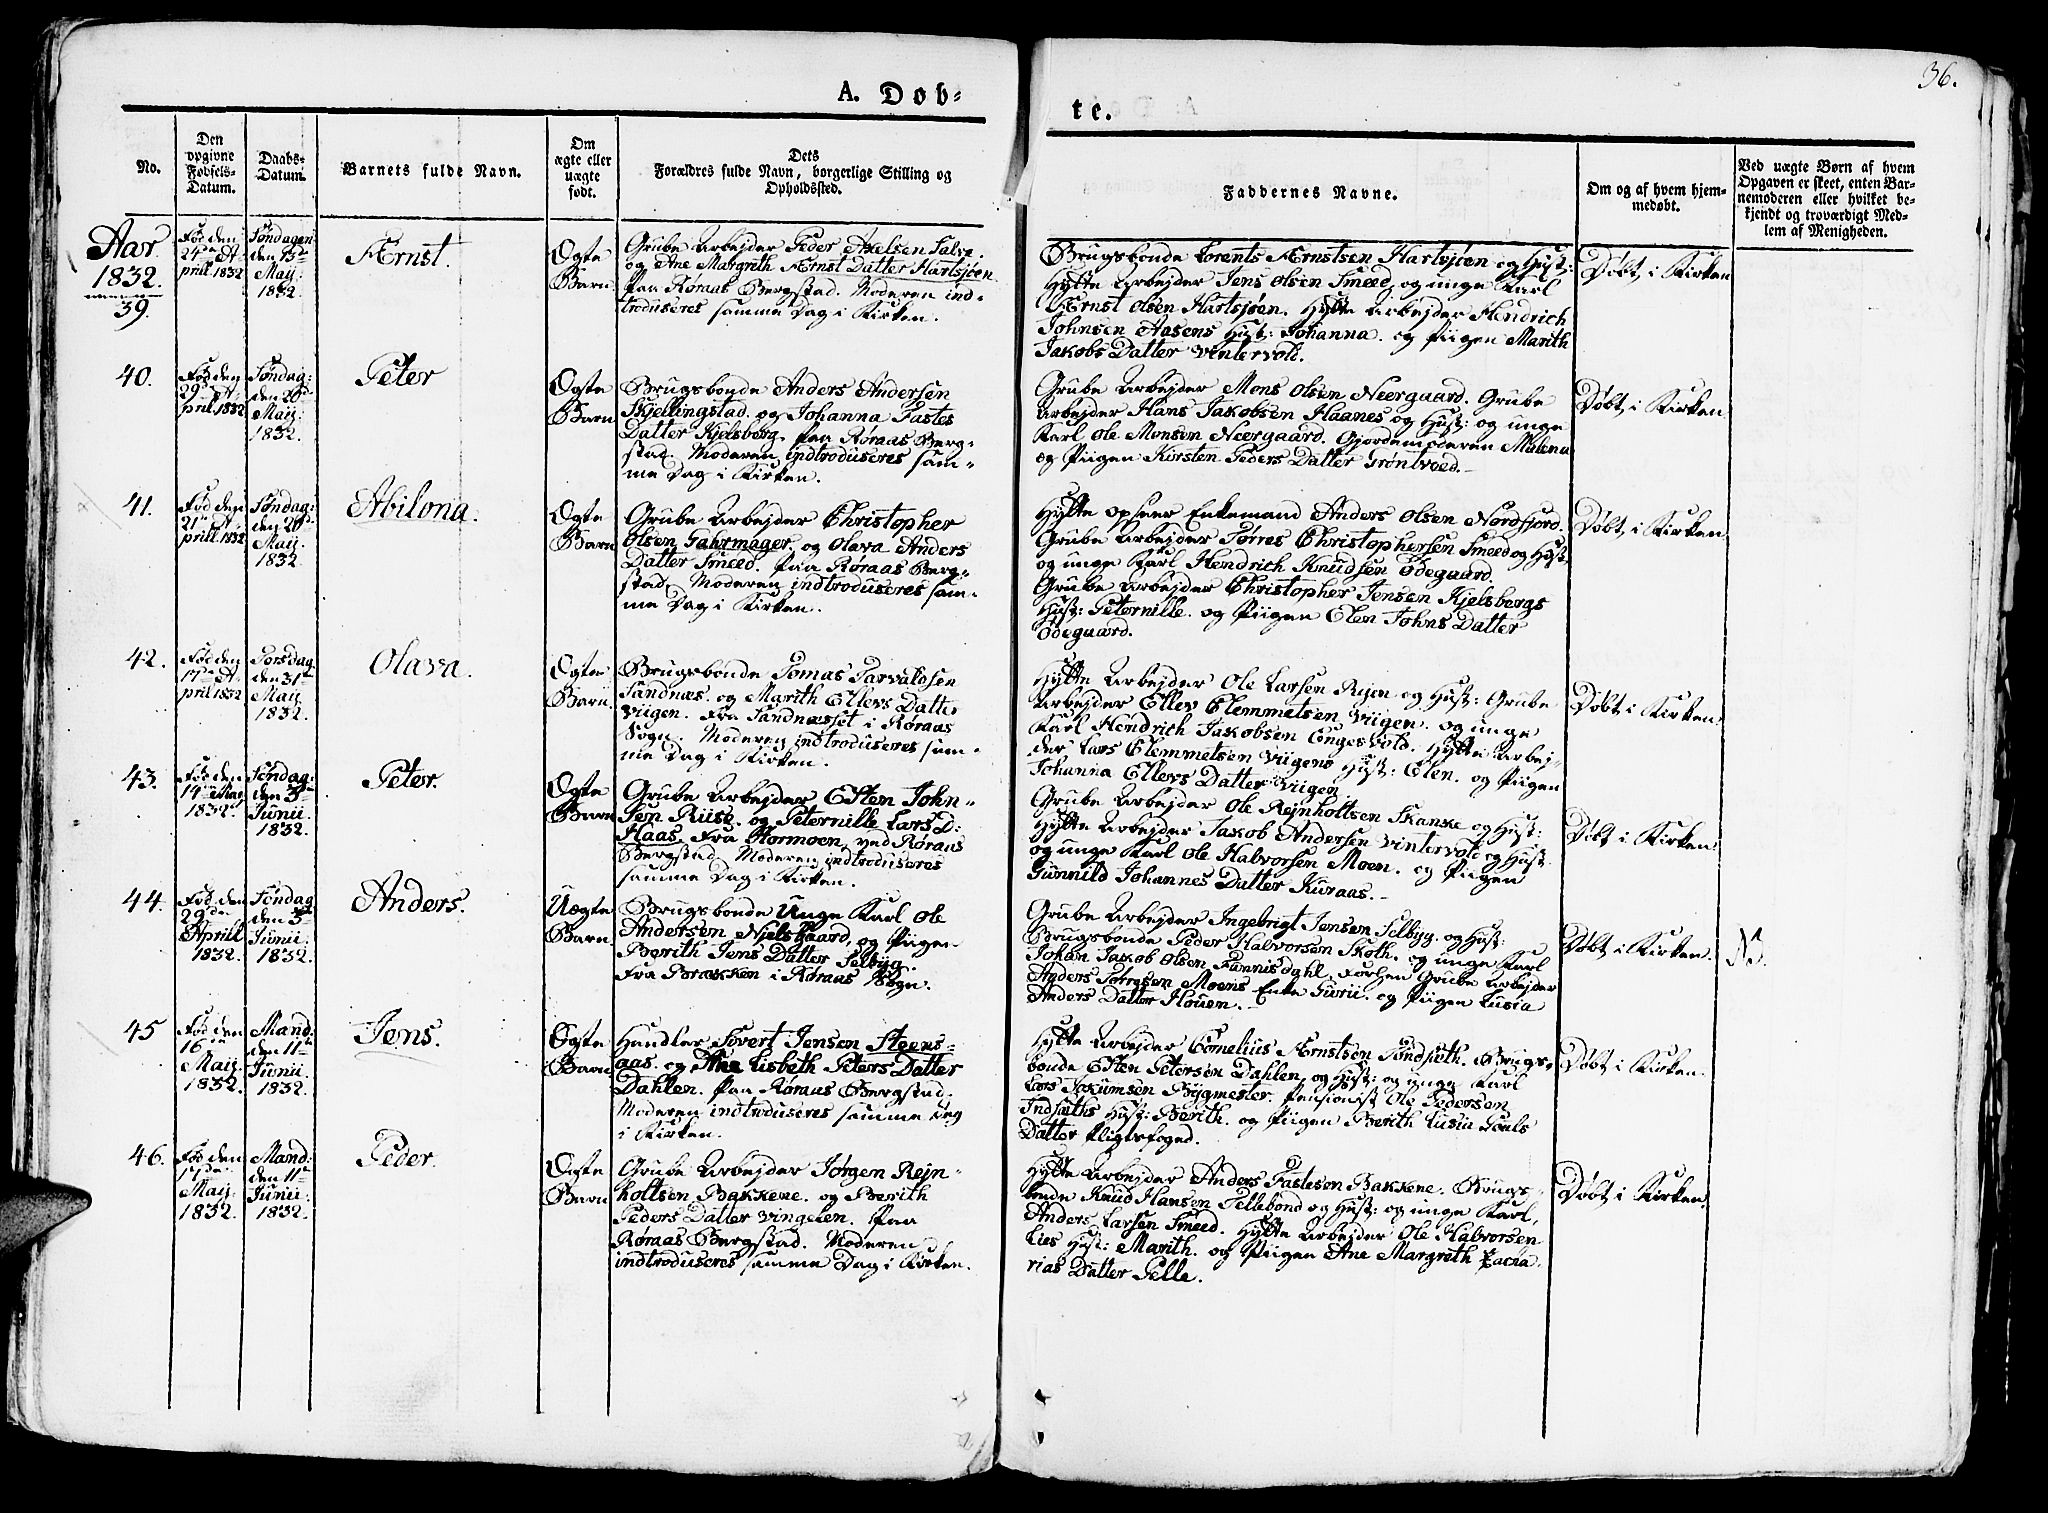 36.
A. Døb-
te.
No.
Den opgivne Fødsels-Datum.
Daabs-Datum.
Barnets fulde Navn.
Om ægte eller uægte født.
Dets Forældres fulde Navn, borgerlige Stilling og Opholdssted.
Faddernes Navne.
Om og af hvem hjem-medøbt.
Ved uægte Børn af hvem Opgaven er skeet, enten Bar-nemoderen eller hvilket be-kjendt og troværdigt Med-lem af Menigheden.
Aar
1832.
39.
Fød den
24de A-
prill 1832
Søndagen
den 13de
Maij
1832.
Ernst.
Ægte
Barn
Grube Arbejder Peder Axelsen Salve.
og Ane Margrith Ernst Datter Hartsjøen
paa Røraas Bergstad. Moderen ind-
troduseres samme Dag i Kirken.
Brugsbonde Lorents Ernstsen Hartsjøen og Hust:
Hytte Arbejder Jens Olsen Smeed, og unge Karl
Ernst Olsen Hartsjøen. Hytte Arbejder Hendrich
Johnsen Aasens Hust: Johanna. og Piigen Marith
Jakobs Datter Vintervold.
Døbt i Kirken
40.
Fød den
29de A-
prill 1832
Søndag:
den 20de
Maij
1832.
Peter
Ægte
Barn
Brugsbonde Anders Andersen
Skjellingstad. og Johanna Fastes
Datter Kjelsberg. paa Røraas Berg-
stad. Moderen indtroduseres sam-
me Dag i Kirken.
Grube Arbejder Mons Olsen Neergaard. Grube
Arbejder Hans Jakobsen Haanes og Hust: og unge
Karl Ole Monsen Neergaard. Gjordemoderen Malena
og Piigen Kirsten Peders Datter Grøntvoed.
Døbt i Kirken
41.
Fød den
21de A-
prill 1832
Søndag:
den 20de
Maij
1832.
Abilona.
Ægte
Barn
Grube Arbejder Christopher
Olsen Gahrmager. og Olava Anders
Datter Smeed. paa Røraas Berg-
stad. Moderen indtroduseres sam-
me Dag i Kirken.
Hytte Opseer Enkemand Anders Olsen Nordfjord.
Grube Arbejder Tørres Christophersen Smeed og Hust
og unge Karl Hendrich Knudsen Ødegaard.
Grube Arbejder Christopher Jensen Kjelsbergs
Hust: Peternille. og Piigen Elen Johns Datter
Ødegaard.
Døbt i Kirken
42.
Fød den
17de A-
prill 1832
Torsdag
den 31te
Maij
1832.
Olava.
Ægte
Barn.
Brugsbonde Tomas Tarvaldsen
Sandnæs. og Marith Ellevs Datter
Viigen. fra Sandnæsset i Røraas
Sogn. Moderen indtroduseres sam-
me Dag i Kirken.
Hytte Arbejder Ole Larsen Rijen og Hust: Grube
Arbejder Ellev Clemmetsen Viigen. og unge
Karl Hendrich Jakobsen Engesvold. Hytte Arbej-
der Lars Clemmetsen Viigens Hust: Elen. og Piigen
Johanna Ellevs Datter Viigen
Døbt i Kirken
43.
Fød den
14de Maij
1832.
Søndag:
den 3die
Junii
1832.
Peter.
Ægte
Barn
Grube Arbejder Esten John-
sen Riise. og Peternille Lars D:
Haas. fra Stormoen, ved Røraas
Bergstad. Moderen indtroduseres
samme Dag i Kirken.
Grube Arbejder Ole Rejnholtsen Skanke og Hust:
Hytte Arbejder Jakob Andersen Vintervold og Hust:
og unge Karl Ole Halvorsen Moen. og Piigen
Gunnild Johannes Datter Kuraas.
Døbt i Kirken
44.
Fød den
29de
Aprill
1832.
Søndag
den 3die
Junii
1832.
Anders.
Uægte
Barn
Brugsbonde Unge Karl Ole
Andersen Nielsgaard, og Piigen
Berith Jens Datter Selbyg.
fra Bræckken i Røraas Sogn.
Grube Arbejder Ingebrigt Jensen Selbyg. og Hust:
Brugsbonde Peder Halvorsen Skoth. og unge Karl
Johan Jakob Olsen Funnisdahl. forhen Grube Arbejder
Anders Tørresen Moens Enke Gurii. og Piigen Lusia
Anders Datter Houen.
Døbt i Kirken.
NB.
45
Fød den
16de
Maij
1832.
Mand:
den 11te
Junii
1832.
Jens.
Ægte
Barn
Handler Sivert Jensen Steens-
aas. og Ane Lisbeth Peters Datter
Dahlen. paa Røraas Bergstad.
Moderen indtroduseres samme Dag
i Kirken.
Hytte Arbejder Cornelius Ernstsen Sundseth. Brugs-
bonde Esten Petersen Dahlen, og Hust: og unge Karl
Lars Jakumsen Bygmester. Pensionist Ole Pedersen
Indsæths Hust: Berith. og Piigen Berith Lusia Poels
Datter Pligtsfoged.
Døbt i Kirken.
46.
Fød den
17de
Maij
1832.
Mand:
den 11te
Junii
1832.
Peder.
Ægte
Barn
Grube Arbejder Jørgen Rejn-
holtsen Bakkene. og Berith
Peders Datter Vingelen. paa
Røraas Bergstad. Moderen
indtroduseres samme Dag i Kirken.
Hytte Arbejder Anders Fastesen Bakkene. Brugs-
bonde Knud Hansen Gellebond og Hust: og unge Karl,
Anders Larsen Smeed. Hytte Arbejder Ole Halvorsen
Lies Hust: Marith. og Piigen Ane Margreth Zacha-
rias Datter Gelle.
Døbt i Kirken.